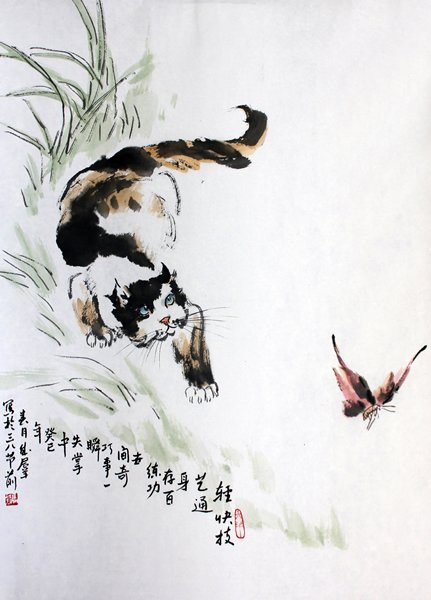 轻快技
艺通
身
存百
练功
世
间奇
巧事一
瞬
失掌
中
癸巳
年
春月
写於三八节前